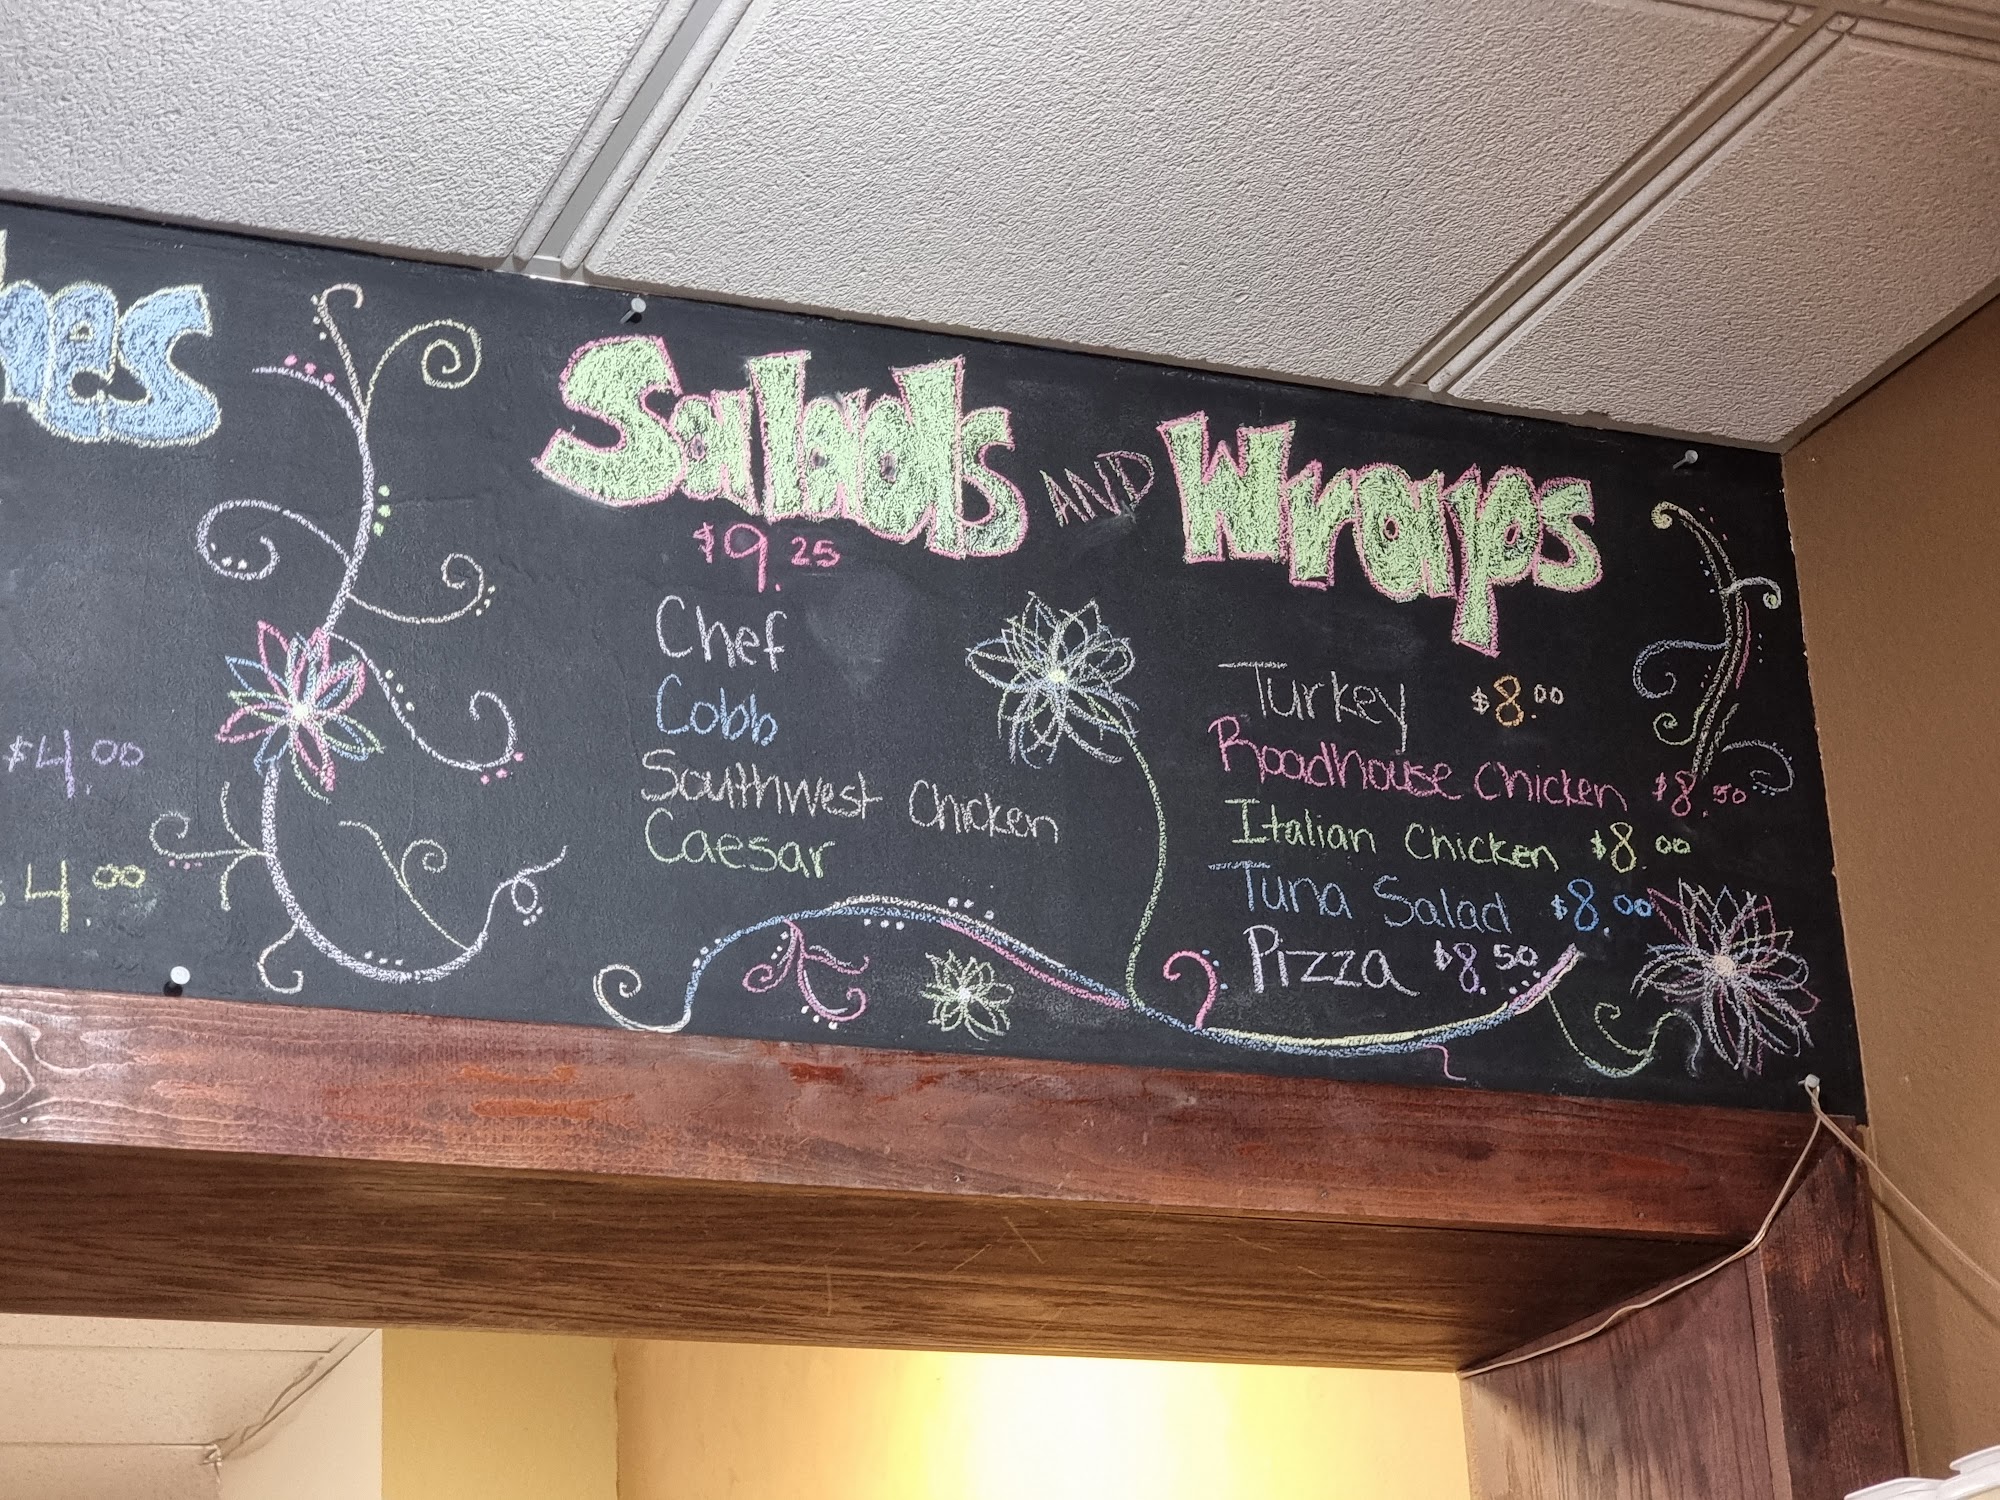 hes
$4.00
$4.00
Salads AND Wraps
$9.25
Chef
Cobb
Southwest Chicken
Caesar
Turkey $8.00
Roadhouse Chicken $8.50
Italian Chicken $8.00
Tuna Salad $8.00
Pizza $8.50